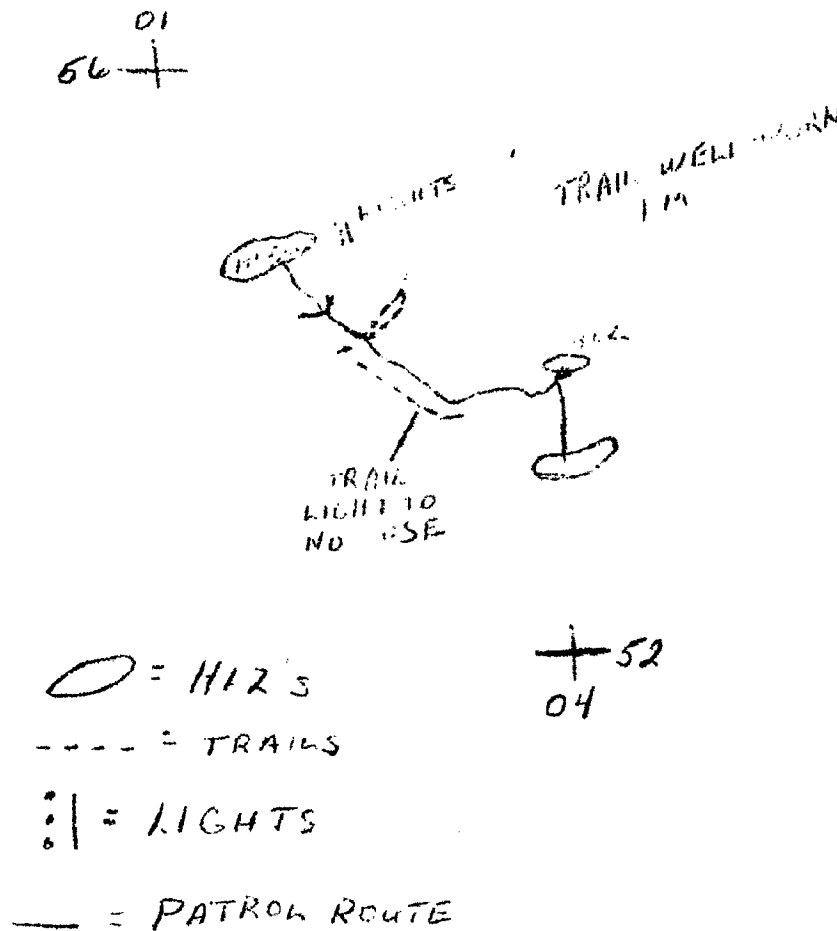 01
56
LIGHTS
TRAIL WELL WORN
1 M
TRAIL
LIGHT TO
NO USE
= HLZ's
52
04
= TRAILS
= LIGHTS
= PATROL ROUTE